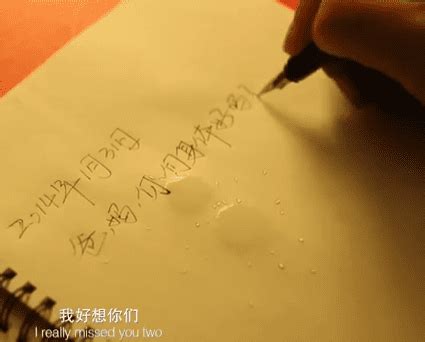 2014年1月31日
爸、妈,你们身体好吗
我好想你们
I really missed you two